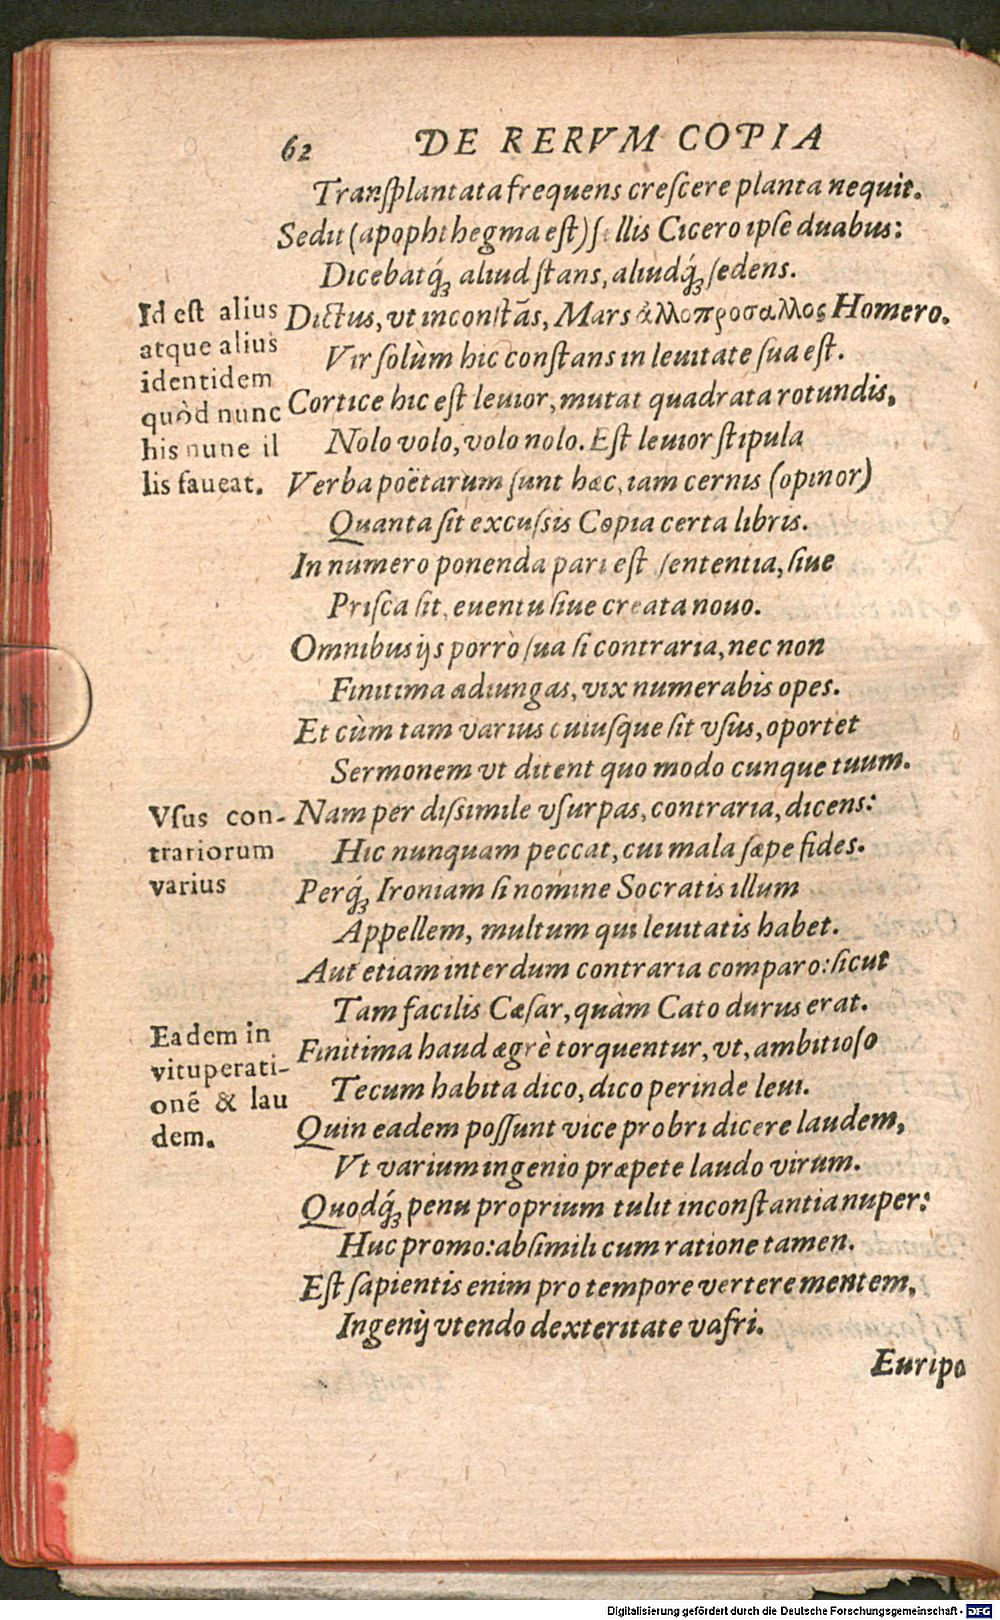 62 DE RERVM COPIA
Transplantata frequens crescere planta nequit.
Sedit (apophthegma est) sellis Cicero ipse duabus:
Dicebatq́ꝫ aliud stans, aliudq́ꝫ sedens.
Id est alius
atque alius
identidem
quòd nunc
his nunc il
lis faueat.
Dictus, vt inconstãs, Mars ἀλλοπροσαλλος Homero.
Vir solùm hic constans in leuitate sua est.
Cortice hic est leuior, mutat quadrata rotundis,
Nolo volo, volo nolo. Est leuior stipula
Verba poëtarum sunt hæc, iam cernis (opinor)
Quanta sit excussis Copia certa libris.
In numero ponenda pari est sententia, siue
Prisca sit, euentu siue creata nouo.
Omnibus ijs porrò sua si contraria, nec non
Finitima adiungas, vix numerabis opes.
Et cùm tam varius cuiusque sit vsus, oportet
Sermonem vt ditent quo modo cunque tuum.
Vsus con-
trariorum
varius
Nam per dissimile vsurpas, contraria, dicens:
Hic nunquam peccat, cui mala sæpe fides.
Perq́ꝫ Ironiam si nomine Socratis illum
Appellem, multum qui leuitatis habet.
Aut etiam interdum contraria comparo: sicut
Tam facilis Cæsar, quàm Cato durus erat.
Eadem in
vituperati-
onẽ & lau
dem.
Finitima haud ægrè torquentur, vt, ambitioso
Tecum habita dico, dico perinde leui.
Quin eadem possunt vice probri dicere laudem,
Vt varium ingenio præpete laudo virum.
Quodq́ꝫ penu proprium tulit inconstantia nuper:
Huc promo: absimili cum ratione tamen.
Est sapientis enim pro tempore vertere mentem,
Ingenij vtendo dexteritate vafri.
Euripo
Digitalisierung gefördert durch die Deutsche Forschungsgemeinschaft - DFG